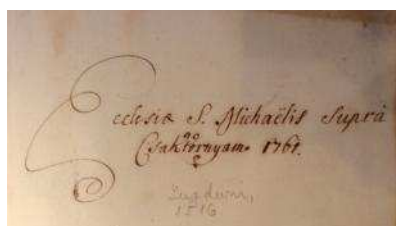 Ecclesiæ S. Michaëlis Suprà
Csaktornyam 1761.
Lugduni,
1516